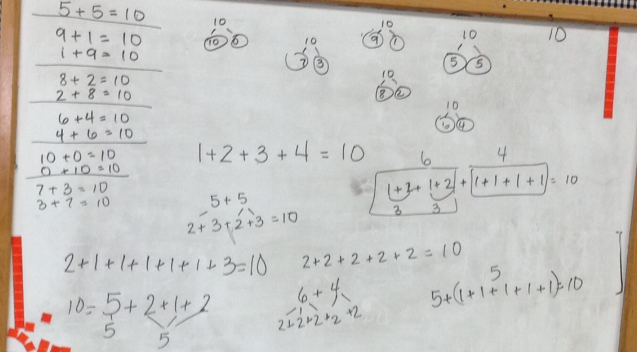 5 + 5 = 10
9 + 1 = 10
1 + 9 = 10
8 + 2 = 10
2 + 8 = 10
6 + 4 = 10
4 + 6 = 10
10 + 0 = 10
0 + 10 = 10
7 + 3 = 10
3 + 7 = 10
10
10 0
10
7 3
10
9 1
10
8 2
10
5 5
10
6 4
10
1 + 2 + 3 + 4 = 10
6 4
1+2+1+2 + 1+1+1+1 = 10
3 3
5 + 5
2+3+2+3 = 10
2+1+1+1+1+1+3=10
2+2+2+2+2=10
10= 5+2+1+2
5 5
6 + 4
2+2+2+2+2
5
5+(1+1+1+1+1)=10